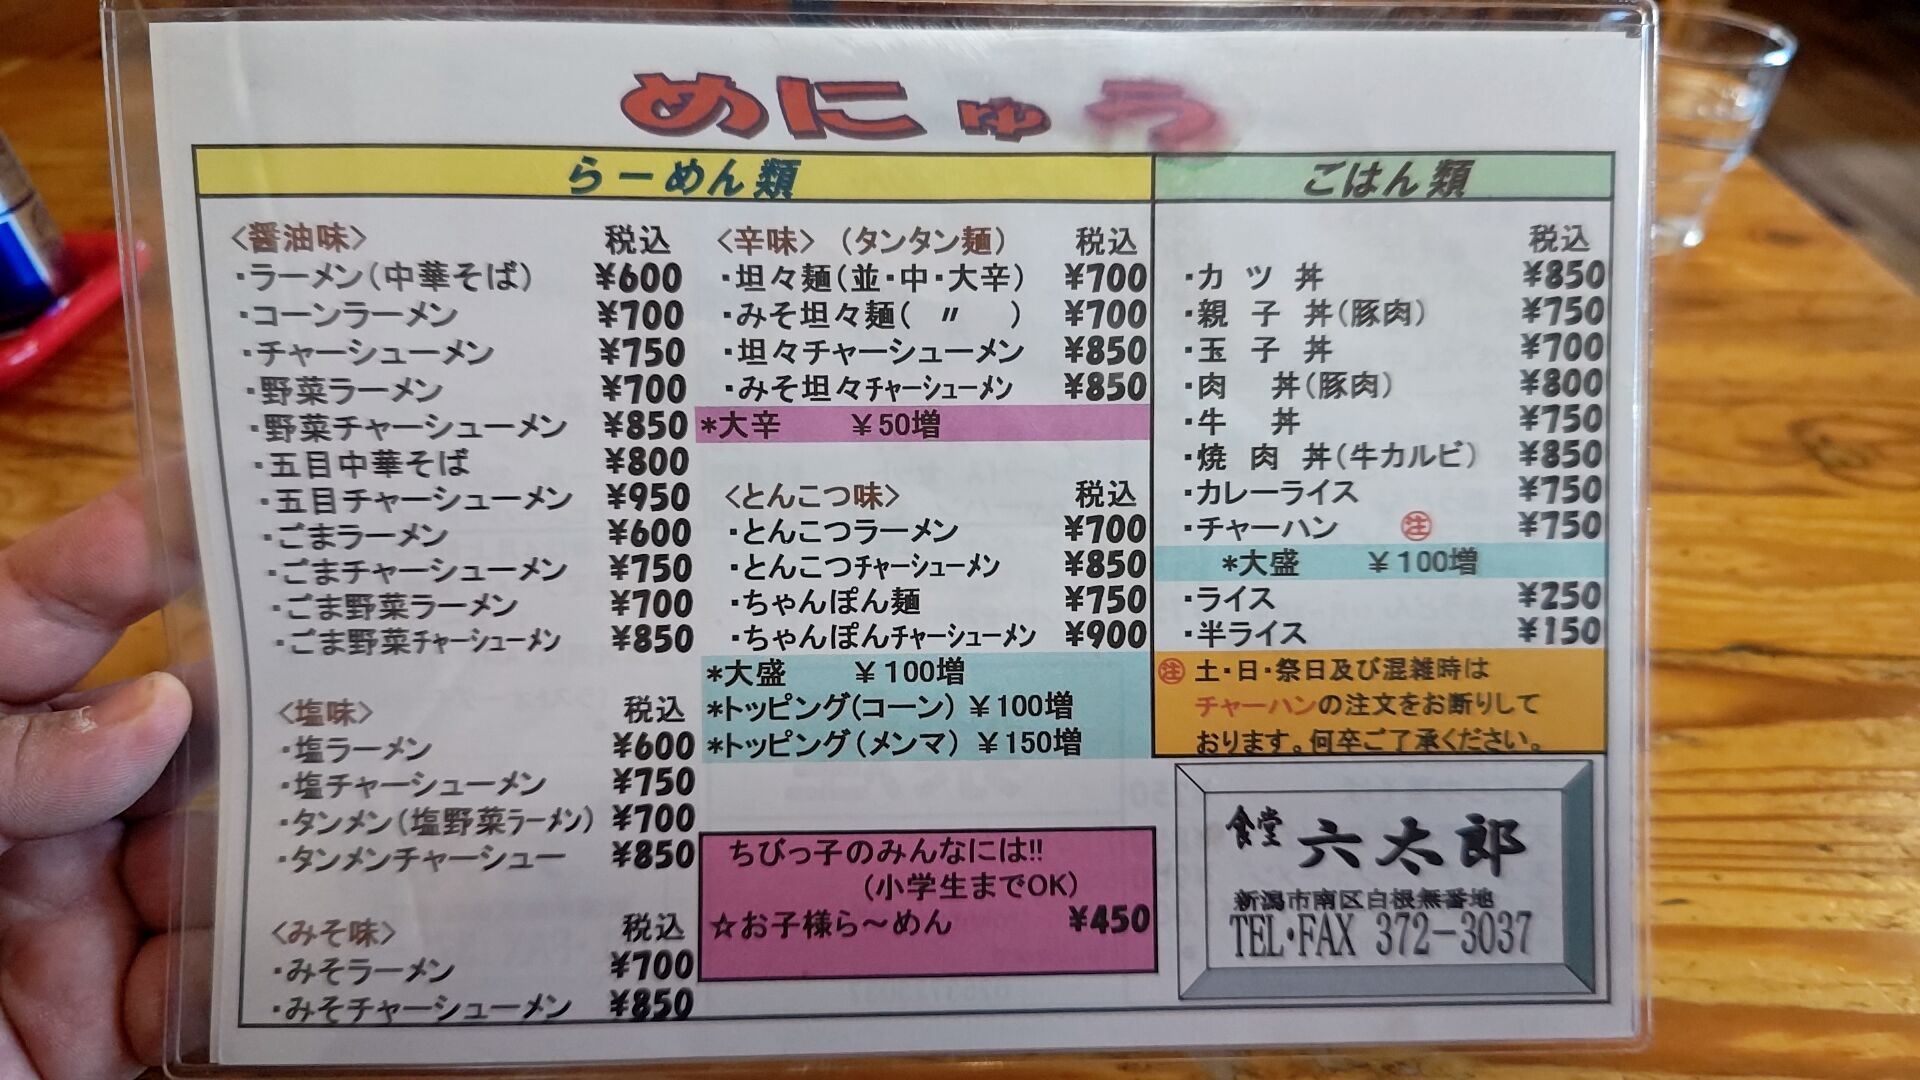 めにゅう
らーめん類
<醤油味> 税込
・ラーメン(中華そば) ¥600
・コーンラーメン ¥700
・チャーシューメン ¥750
・野菜ラーメン ¥700
・野菜チャーシューメン ¥850
・五目中華そば ¥800
・五目チャーシューメン ¥950
・ごまラーメン ¥600
・ごまチャーシューメン ¥750
・ごま野菜ラーメン ¥700
・ごま野菜チャーシューメン ¥850
<塩味> 税込
・塩ラーメン ¥600
・塩チャーシューメン ¥750
・タンメン(塩野菜ラーメン) ¥700
・タンメンチャーシュー ¥850
<みそ味> 税込
・みそラーメン ¥700
・みそチャーシューメン ¥850
<辛味> (タンタン麺) 税込
・坦々麺(並・中・大辛) ¥700
・みそ坦々麺( 〃 ) ¥700
・坦々チャーシューメン ¥850
・みそ坦々チャーシューメン ¥850
*大辛 ¥50増
<とんこつ味> 税込
・とんこつラーメン ¥700
・とんこつチャーシューメン ¥850
・ちゃんぽん麺 ¥750
・ちゃんぽんチャーシューメン ¥900
*大盛 ¥100増
*トッピング(コーン) ¥100増
*トッピング(メンマ) ¥150増
ちびっ子のみんなには!!
(小学生までOK)
☆お子様ら〜めん ¥450
ごはん類
税込
・カツ丼 ¥850
・親子丼(豚肉) ¥750
・玉子丼 ¥700
・肉丼(豚肉) ¥800
・牛丼 ¥750
・焼肉丼(牛カルビ) ¥850
・カレーライス ¥750
・チャーハン ㊟ ¥750
*大盛 ¥100増
・ライス ¥250
・半ライス ¥150
㊟ 土・日・祭日及び混雑時は
チャーハンの注文をお断りして
おります。何卒ご了承ください。
食堂 六太郎
新潟市南区白根無番地
TEL・FAX 372-3037